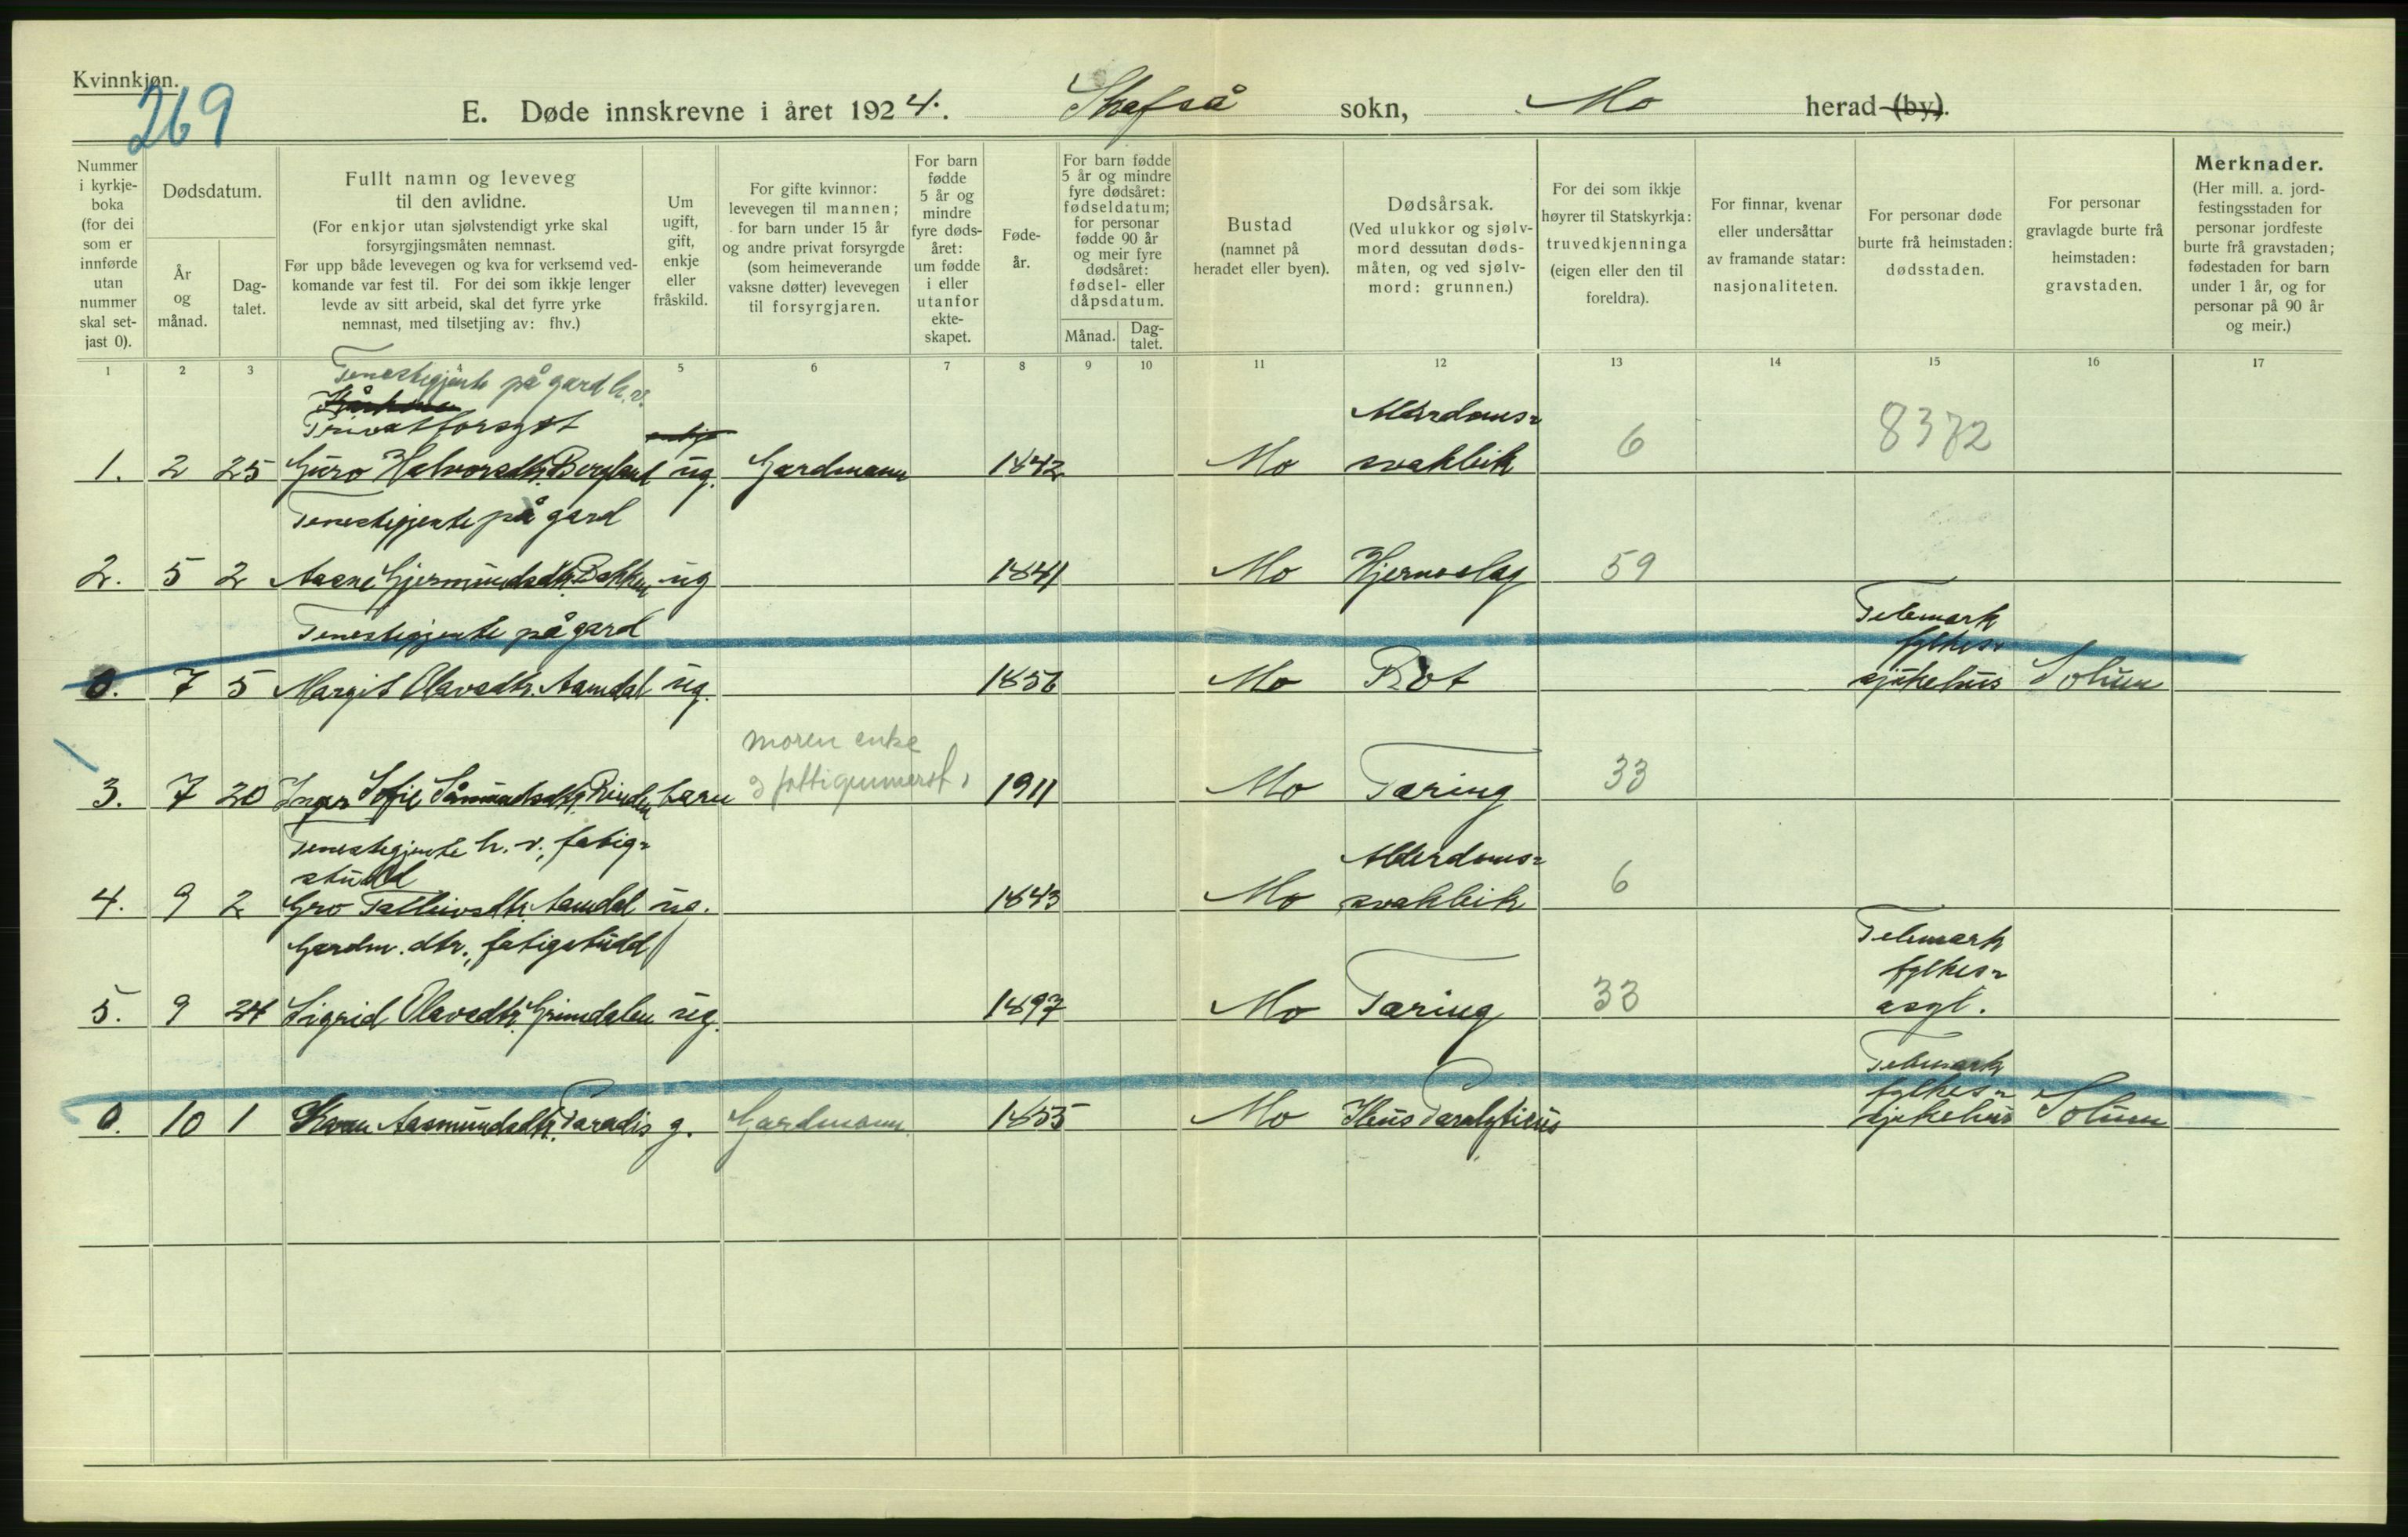 Kvinnkjøn.
269
E. Døde innskrevne i året 1924. Skafså sokn, Mo herad (by).
Nummer
i kyrkje-
boka
(for dei
som er
innførde
utan
nummer
skal set-
jast 0).
Dødsdatum.
År
og
månad.
Dag-
talet.
Fullt namn og leveveg
til den avlidne.
(For enkjor utan sjølvstendigt yrke skal
forsyrgjingsmåten nemnast.
Før upp både levevegen og kva for verksemd ved-
komande var fest til. For dei som ikkje lenger
levde av sitt arbeid, skal det fyrre yrke
nemnast, med tilsetjing av: fhv.)
Um
ugift,
gift,
enkje
eller
fråskild.
For gifte kvinnor:
levevegen til mannen;
for barn under 15 år
og andre privat forsyrgde
(som heimeverande
vaksne døtter) levevegen
til forsyrgjaren.
For barn
fødde
5 år og
mindre
fyre døds-
året:
um fødde
i eller
utanfor
ekte-
skapet.
Føde-
år.
For barn fødde
5 år og mindre
fyre dødsåret:
fødseldatum;
for personar
fødde 90 år
og meir fyre
dødsåret:
fødsel- eller
dåpsdatum.
Månad.
Dag-
talet.
Bustad
(namnet på
heradet eller byen).
Dødsårsak.
(Ved ulukkor og sjølv-
mord dessutan døds-
måten, og ved sjølv-
mord: grunnen.)
For dei som ikkje
høyrer til Statskyrkja:
truvedkjenninga
(eigen eller den til
foreldra).
For finnar, kvenar
eller undersåttar
av framande statar:
nasjonaliteten.
For personar døde
burte frå heimstaden:
dødsstaden.
For personar
gravlagde burte frå
heimstaden:
gravstaden.
Merknader.
(Her mill. a. jord-
festingsstaden for
personar jordfeste
burte frå gravstaden;
fødestaden for barn
under 1 år, og for
personar på 90 år
og meir.)
1 2 3 5 6 7 8 9 10 11 12 13 14 15 16 17
Tenestegjente på gard h.v.
Privatforsyrt enkje Alderdoms-
1. 2 25 Guro Halvorsdtr. Bergland ug. Gardmann 1842 Mo svakleik 6 8372
Tenestegjente på gard
2. 5 2 Aasne Gjermundsdtr. Bakken ug 1841 Mo Hjerneslag 59
Tenestegjente på gard Telemark
fylkes-
0. 7 5 Margit Olavsdtr. Aamdal ug. 1856 Mo Rot sjukehus Solum
moren enke
3. 7 20 Inger Sofie Såmundsdtr. Rinden barn fattigunderst. 1911 Mo Tæring 33
Tenestegjente h. v., fatig-
studd Alderdoms-
4. 9 2 Gro Talleivsdtr. Aamdal ug. 1843 Mo svakleik 6
Gardm. dtr., fatigstudd Telemark
fylkes-
5. 9 24 Sigrid Olavsdtr. Grimdalen ug. 1897 Mo Tæring 33 asyl.
Telemark
fylkes-
0. 10 1 Aasmundsdtr. Paradis g. Gardmann 1855 Mo Ileus Paralyticus sjukehus Solum